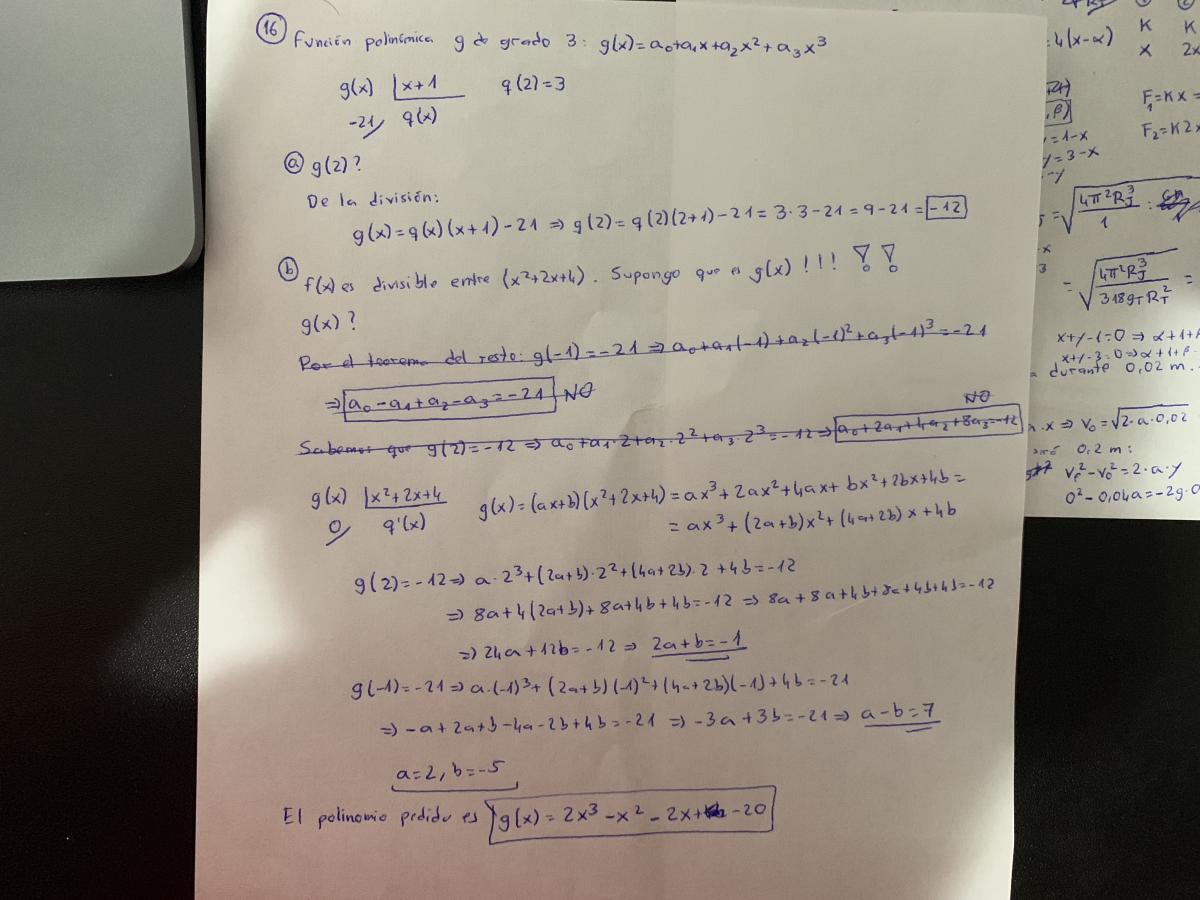 16 Función polinómica g de grado 3: g(x)=a₀+a₁x+a₂x²+a₃x³
g(x) |x+1 q(2)=3
-21 q(x)
a g(2)?
De la división:
g(x)=q(x)(x+1)-21 ⇒ g(2)=q(2)(2+1)-21=3·3-21=9-21=-12
b f(x) es divisible entre (x²+2x+4). Supongo que es g(x)!!! !!
g(x)?
Por el teorema del resto: g(-1)=-21 ⇒ a₀+a₁(-1)+a₂(-1)²+a₃(-1)³=-21
⇒ a₀-a₁+a₂-a₃=-21 NO
NO
Sabemos que g(2)=-12 ⇒ a₀+a₁·2+a₂·2²+a₃·2³=-12 ⇒ a₀+2a₁+4a₂+8a₃=-12
g(x) |x²+2x+4 g(x)=(ax+b)(x²+2x+4)=ax³+2ax²+4ax+bx²+2bx+4b=
0 q'(x) =ax³+(2a+b)x²+(4a+2b)x+4b
g(2)=-12 ⇒ a·2³+(2a+b)·2²+(4a+2b)·2+4b=-12
⇒ 8a+4(2a+b)+8a+4b+4b=-12 ⇒ 8a+8a+4b+8a+4b+4b=-12
⇒ 24a+12b=-12 ⇒ 2a+b=-1
g(-1)=-21 ⇒ a·(-1)³+(2a+b)(-1)²+(4a+2b)(-1)+4b=-21
⇒ -a+2a+b-4a-2b+4b=-21 ⇒ -3a+3b=-21 ⇒ a-b=7
a=2, b=-5
El polinomio pedido es g(x)=2x³-x²-2x+ -20
=4(x-α)
K K
x 2x
F₁=Kx=
,β)
F₂=K2x
=1-x
y=3-x
-y
=√(4π²R_J³/1) :
-x
3
=√(4π²R_J³/318g_T R_T²) =
x+y-1=0 ⇒ α+1+β
x+y-3=0 ⇒ α+1+β-
durante 0,02 m.
·x ⇒ v₀=√2·a·0,02
0,2 m:
v_f²-v₀²=2·a·y
0²-0,04a=-2g·0